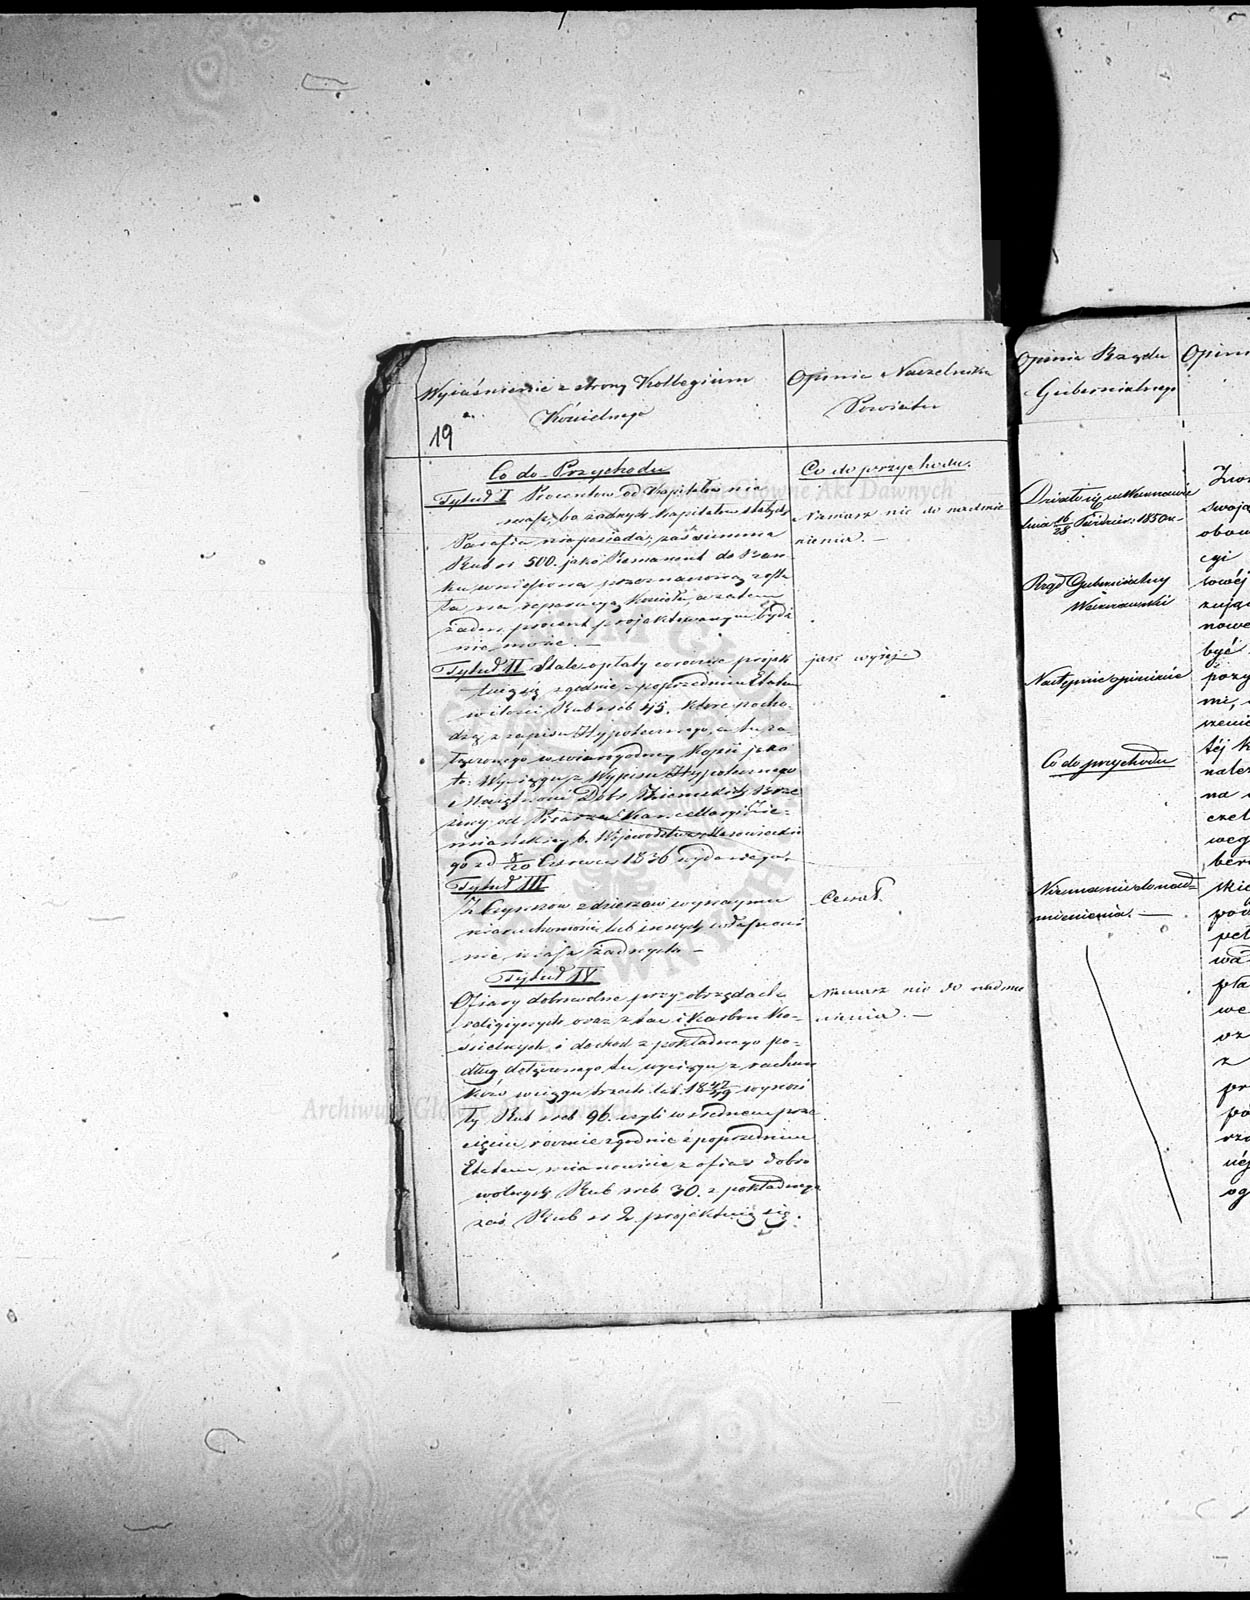 Wyjaśnienie z strony Kollegium
Kościelnego
19
Co do Przychodu
Tytuł I Procentow od Kapitałów nie
masz, bo żadnych Kapitałów stałych
Parafia nieposiada, zaś summa
Rub sr 500. jako Remanent do Ban-
ku wniesiona przeznaczoną zosta
ła na reperacyą Kościoła, a zatem
żaden procent projektowanym bydź
nie może. —
Tytuł II Stałe opłaty corocznie projek
tuią się zgodnie z poprzednim Etatem
w ilości Rub sreb 45. które pocho-
dzą z zapisu Hypotecznego, a tu za-
łączonego w wiarogodney Kopii jako
to: Wyciągu z Wypisu Hypotecznego
Dóbr Ziemskich
od Pisarza Kancellaryi Zie-
miańskiey b. Województwa Mazowieckie
go z d 8/20 Czerwca 1836 wydanego.
Tytuł III
Z Czynszów z dzierżaw wynaymu
nieruchomości lub innych własności
nie masz żadnych —
Tytuł IV
Ofiary dobrowolne przy obrzędach
religijnych oraz z tac i Karbon Ko-
ścielnych i dochod z pokładnego po-
dług dołączonego tu wyciągu z rachun
ków w ciągu trzech lat 1847/49 wynosi
ły Rub sreb 96. czyli w średnim prze
cięciu, rocznie zgodnie z poprzednim
Etatem, mianowicie z ofiar dobro
wolnych Rub sreb 30. z pokładnego
zaś Rub sr 2. projektuią się.
Opinia Naczelnika
Powiatu
Co do przychodu.
Niemasz nic do nadmie
nienia. —
jak wyżej
Cessat.
Niemasz nic do nadmie
nienia. —
Opinia Rządu
Gubernialnego
Działo się w Warszawie
dnia 16/28 Paździer: 1850 r.
Rząd Gubernialny
Warszawski
Następnie opiniuie
Co do przychodu.
Niema nic do nad-
mienienia. —
Opini
swoją
obow
cyi
nowe
być
mi,
tej k
nale
na
czel
weg
ber
skie
pod
wa
pła
we
z
pr
og
Archiwum Główne Akt Dawnych